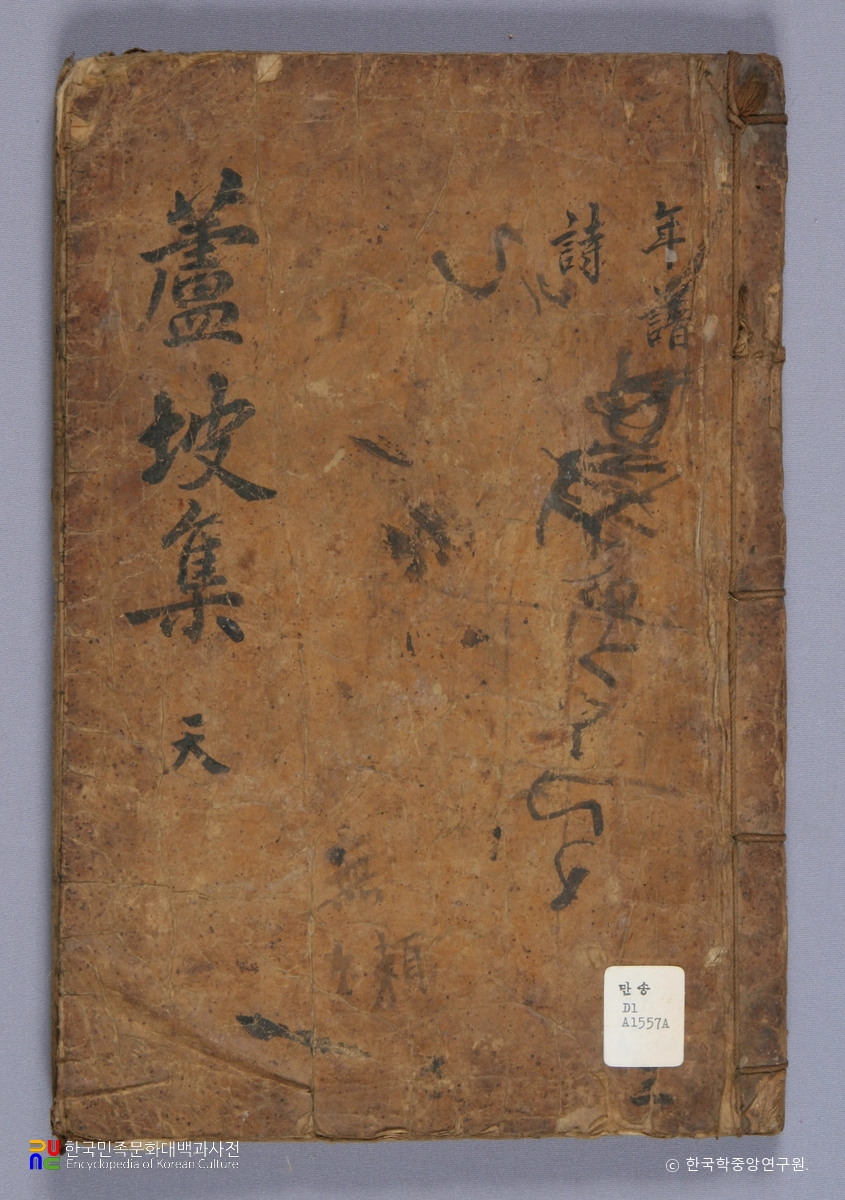 年譜
詩
蘆坡集 天
無
만송
D1
A1557A
한국민족문화대백과사전
Encyclopedia of Korean Culture
ⓒ 한국학중앙연구원.